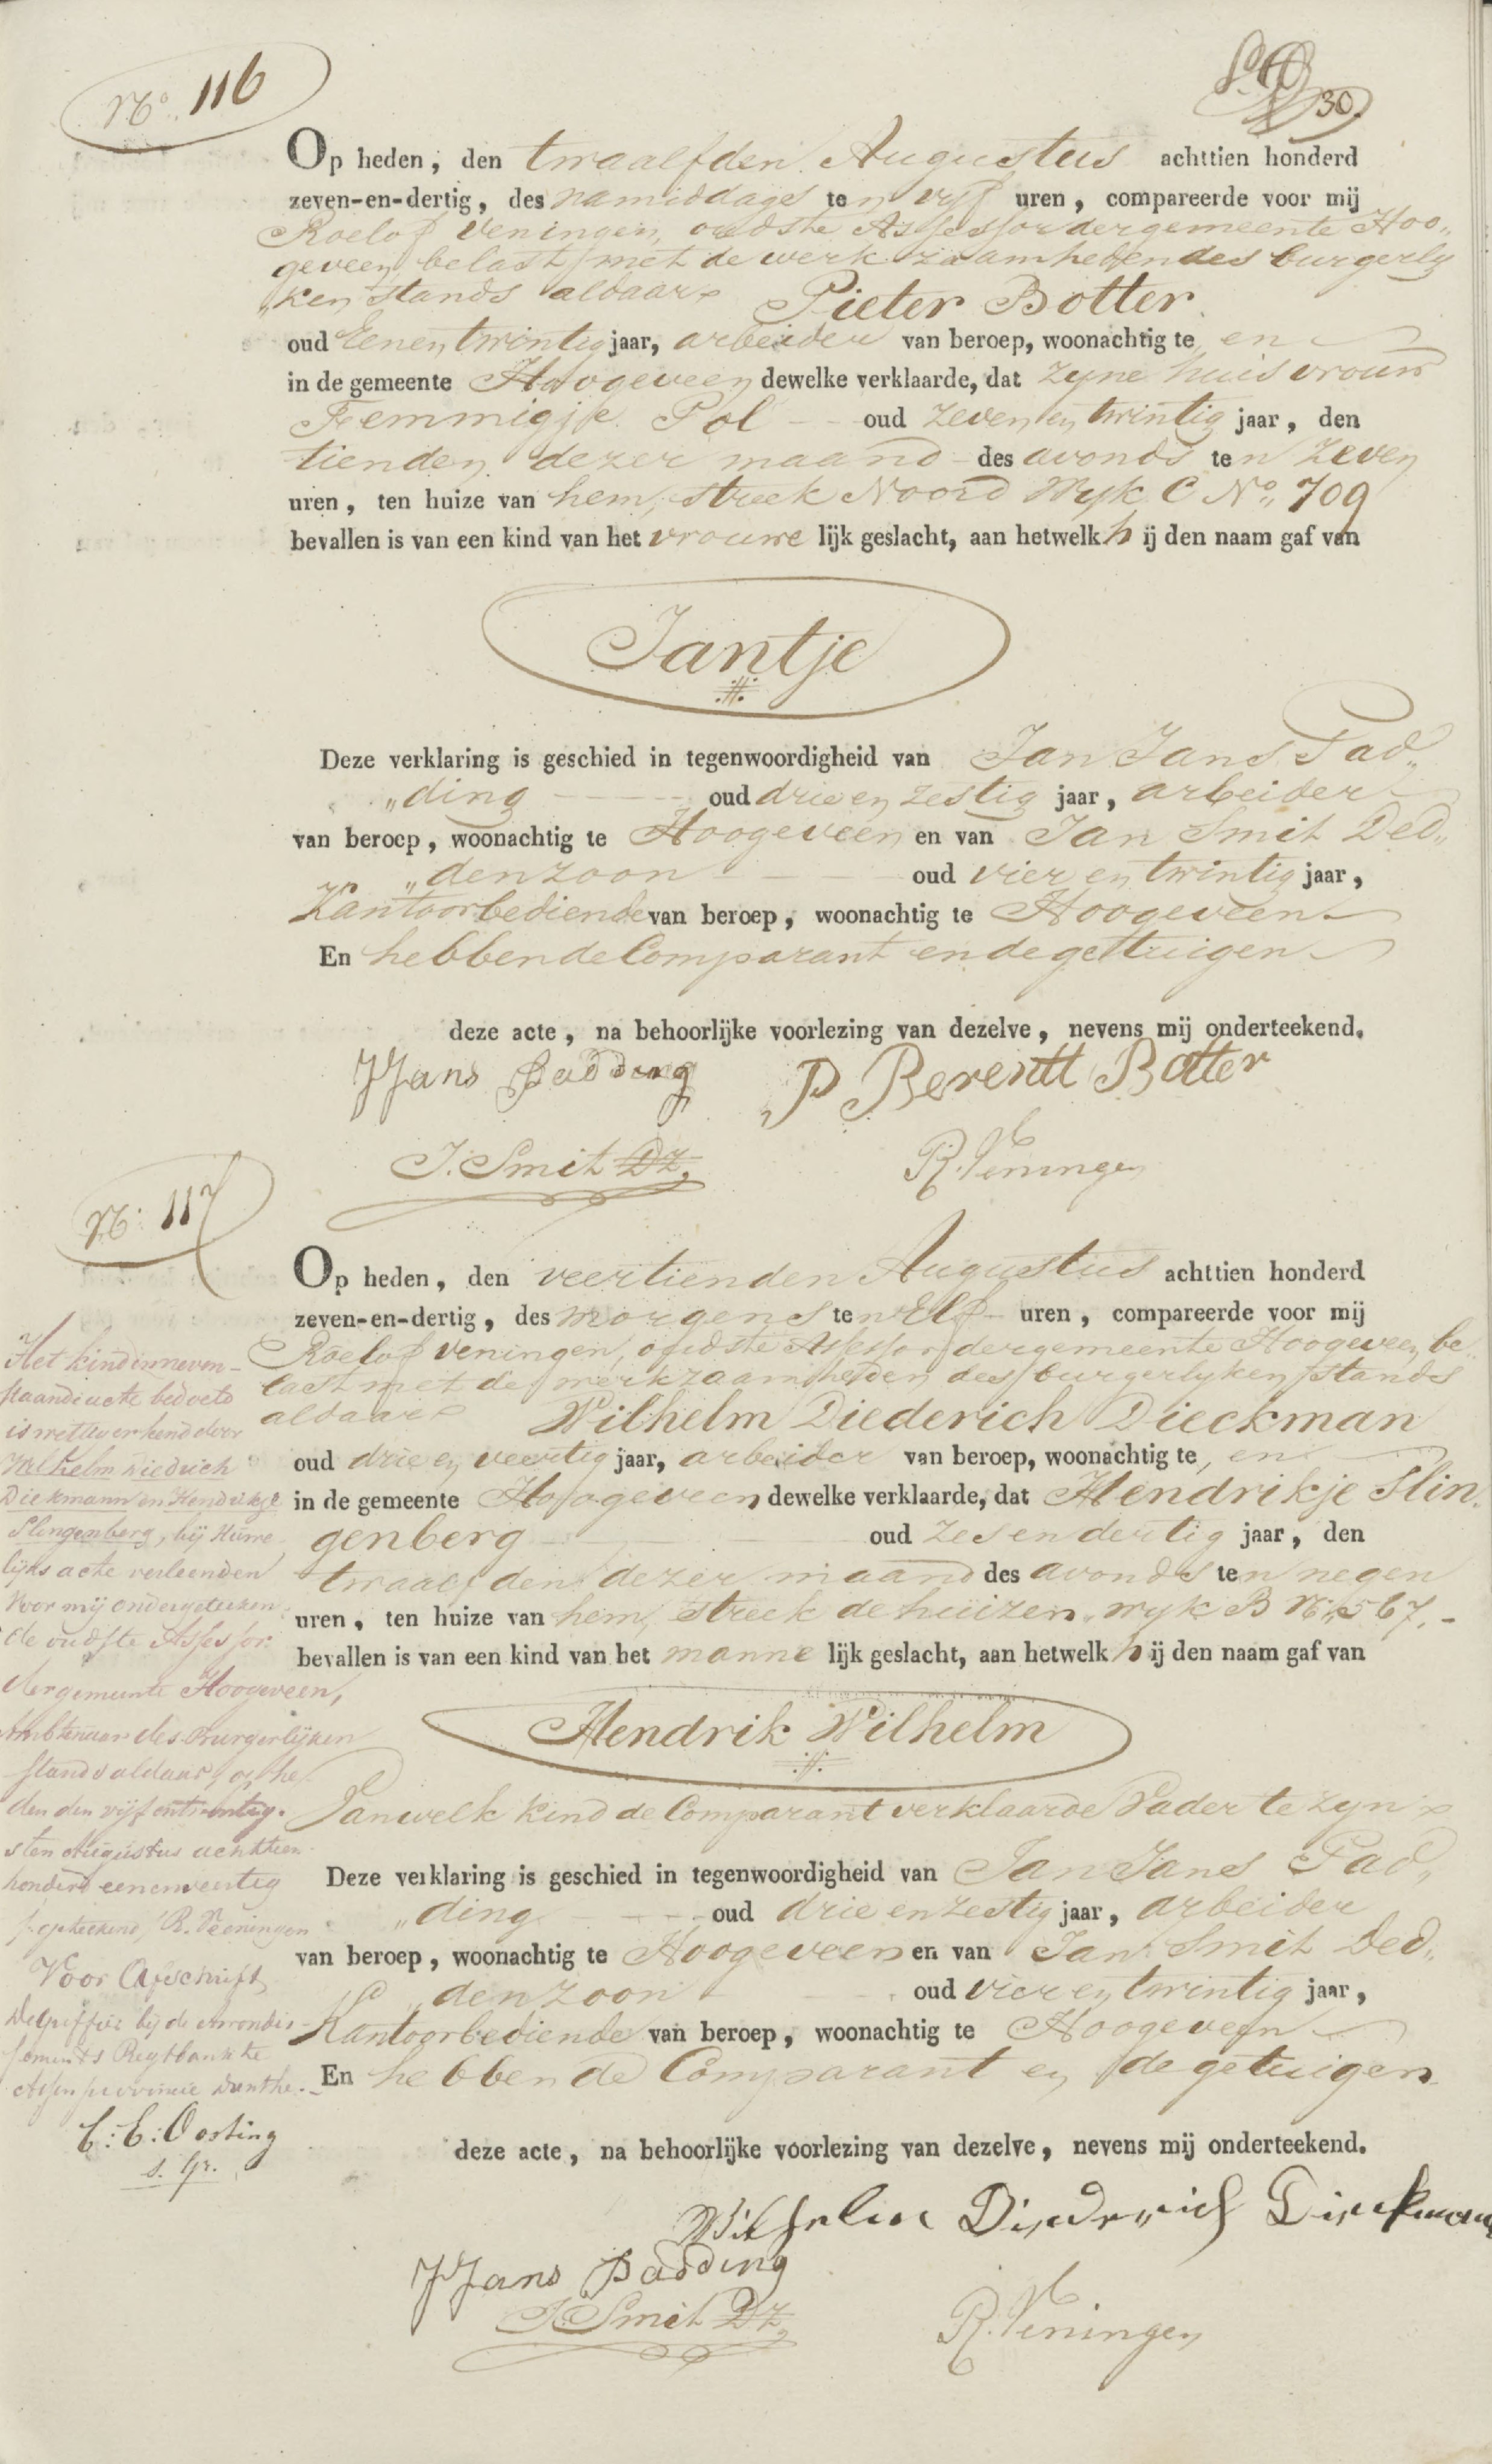 No. 116
30.
Op heden, den twaalfden Augustus achttien honderd
zeven-en-dertig, des namiddags ten vijf uren, compareerde voor mij
Roelof Veningen, oudste Assessor der gemeente Hoo„
geveen, belast met de werkzaamheden des burgerly
„ken stands aldaar
Pieter Botter
oud Eenentwintig jaar, arbeider van beroep, woonachtig te, en
in de gemeente Hoogeveen dewelke verklaarde, dat zyne huisvrouw
Femmigje Pol oud zevenentwintig jaar, den
tienden dezer maand des avonds ten zeven
uren, ten huize van hem, streek Noord Wyk C No„ 709
bevallen is van een kind van het vrouwe lijk geslacht, aan hetwelk hij den naam gaf van
Jantje
Deze verklaring is geschied in tegenwoordigheid van Jan Jans Pad„
„ding oud drie en zestig jaar, arbeider
van beroep, woonachtig te Hoogeveen en van Jan Smit Ded„
„denzoon oud vier en twintig jaar,
Kantoorbediende van beroep, woonachtig te Hoogeveen
En hebben de Comparant en de gettuigen
deze acte, na behoorlijke voorlezing van dezelve, nevens mij onderteekend.
JJans Padding P Berentt Botter
J. Smit DZ, R. Veningen
No: 117
Op heden, den veertienden Augustus achttien honderd
zeven-en-dertig, des morgens ten Elf uren, compareerde voor mij
Roelof Veningen, oudste Assessor der gemeente Hoogeveen, be„
last met de werkzaamheden des burgerlyken stands
aldaar Wilhelm Diederich Dieckman
oud drie en veertig jaar, arbeider van beroep, woonachtig te, en
in de gemeente Hoogeveen dewelke verklaarde, dat Hendrikje Slin„
genberg oud zesendertig jaar, den
twaalfden dezer maand des avonds ten negen
uren, ten huize van hem, streek de huizen, wyk B No„ 567.
bevallen is van een kind van het manne lijk geslacht, aan hetwelk hij den naam gaf van
Hendrik Wilhelm
Van welk kind de Comparant verklaarde Vader te zyn
Deze verklaring is geschied in tegenwoordigheid van Jan Jans Pad„
„ding oud drie en zestig jaar, arbeider
van beroep, woonachtig te Hoogeveen en van Jan Smit Ded„
„denzoon oud vier en twintig jaar,
Kantoorbediende van beroep, woonachtig te Hoogeveen
En hebben de Comparant en de getuigen
deze acte, na behoorlijke voorlezing van dezelve, nevens mij onderteekend.
Wilhelm Diederich Dieckmann
JJans Padding
J. Smit DZ, R. Veningen
Het kind in neven-
staande acte bedoeld
is wettig erkend door
Wilhelm Diedrich
Diekmann en Hendrikje
Slengenberg, bij Huwe
lijks acte verleenden
voor mij ondergeteeken
de oudste Assessor
der gemeente Hoogeveen,
Ambtenaar des Burgerlijken
stands aldaar, op he
den den vijf entwintig-
sten Augustus achttien
honderd eenenveertig
/:geteekend/ R. Veeningen
Voor Afschrift,
De griffier bij de Arrondis
sements Regtbank te
Assen provincie Drenthe.
C: E: Oosting
s. Gr.